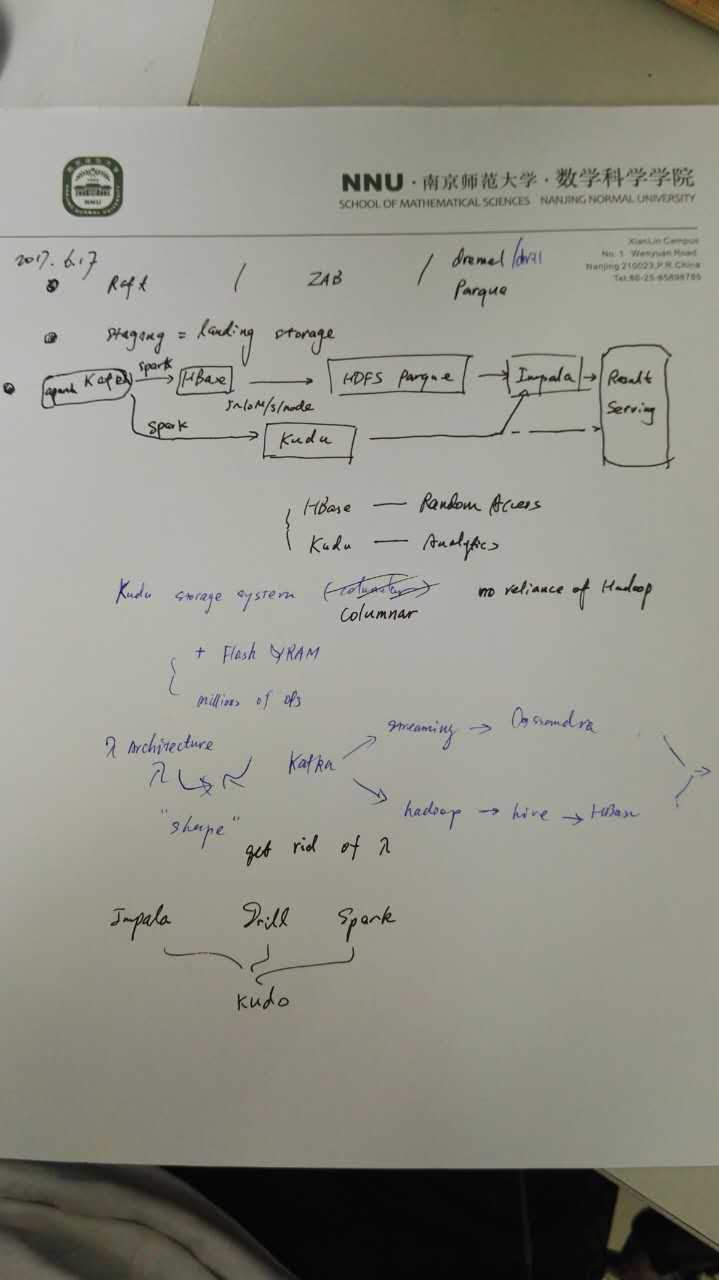 NNU · 南京师范大学 · 数学科学学院
SCHOOL OF MATHEMATICAL SCIENCES NANJING NORMAL UNIVERSITY
XianLin Campus
No. 1 Wenyuan Road
Nanjing 210023, P.R.China
Tel:86-25-85898785
2017. 6.17
Raft / ZAB / dremel/drill
Parque
staging = landing storage
Kafka spark HBase HDFS Parque Impala Result
Serving
5~10M/s/node
spark Kudu
HBase — Random Access
Kudu — Analytics
Kudu storage system (columnar) no reliance of Hadoop
columnar
+ Flash RAM
millions of ops
λ Architecture
λ
streaming → Cassandra
Kafka
hadoop → hive → HBase
"shape"
get rid of λ
Impala Drill Spark
Kudo